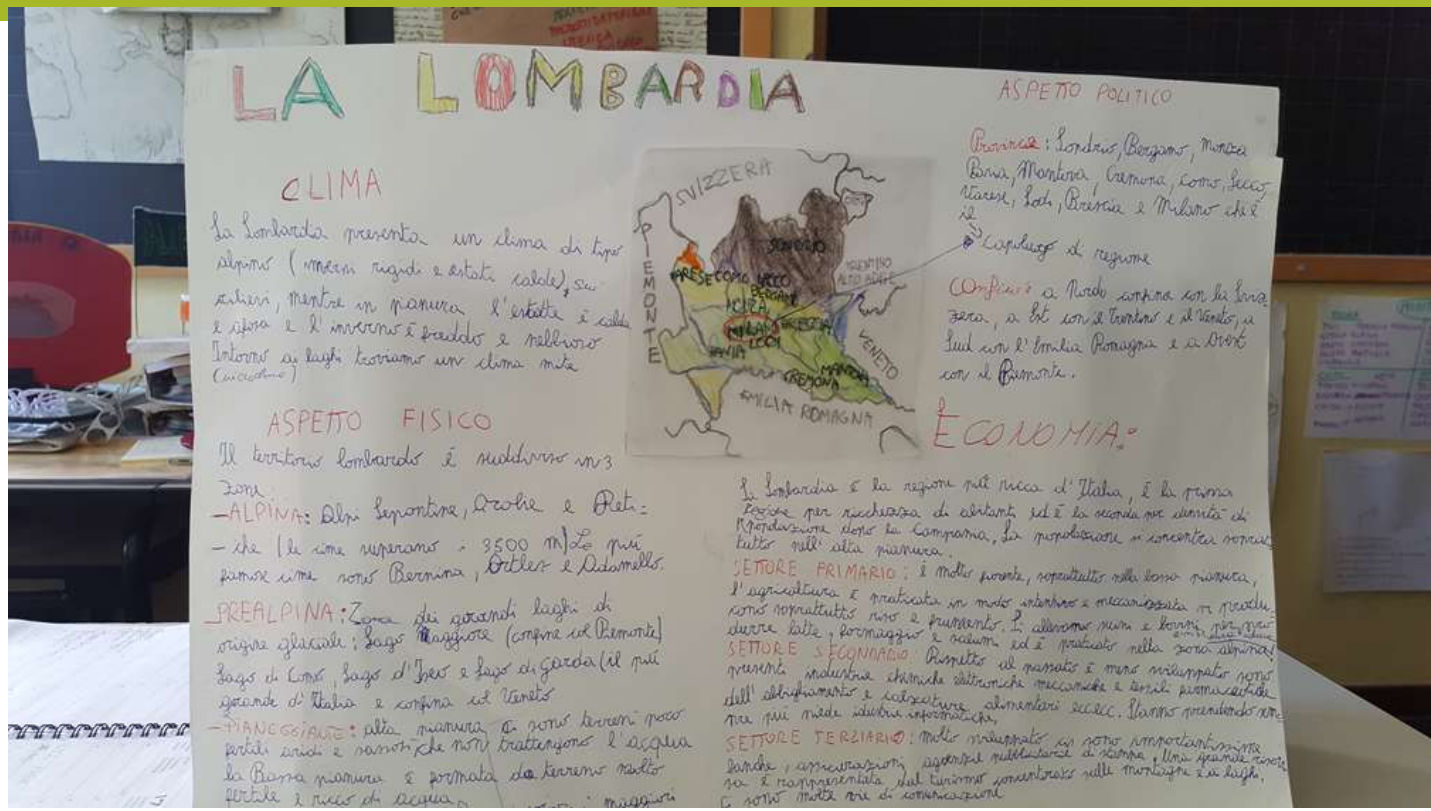 LA LOMBARDIA
CLIMA
La Lombardia presenta un clima di tipo
alpino (inverni rigidi e estati calde), sui
rilievi, mentre in pianura l'estate è calda
e afosa e l'inverno è freddo e nebbioso
Intorno ai laghi troviamo un clima mite
ASPETTO FISICO
Il territorio lombardo è suddiviso in 3
zone:
-ALPINA: Alpi Lepontine, Orobie e Reti=
- che (le cime superano i 3500 m) Le più
famose cime sono Bernina, Ortles e Adamello.
-PREALPINA: Zona dei grandi laghi di
origine glaciale: Lago Maggiore (confine col Piemonte)
Lago di Como, Lago d'Iseo e Lago di Garda (il più
grande d'Italia e confina col Veneto
-PIANEGGIANTE: alta pianura ci sono terreni poco
fertili aridi e sassosi che non trattengono l'acqua
la Bassa pianura è formata da terreno molto
fertile e ricco di acqua
maggiori
SVIZZERA
PIEMONTE
SONDRIO
VARESE COMO LECCO
BERGAMO
MONZA
MILANO BRESCIA
LODI
PAVIA
MANTOVA
CREMONA
TRENTINO
ALTO ADIGE
VENETO
EMILIA ROMAGNA
ASPETTO POLITICO
Province: Sondrio, Bergamo, Monza
Pavia, Mantova, Cremona, Como, Lecco,
Varese, Lodi, Brescia e Milano che è
il
capoluogo di regione
Confini: a Nord confina con la Sviz
zera, a Est con il Trentino e il Veneto, a
Sud con l'Emilia Romagna e a Ovest
con il Piemonte.
ECONOMIA:
La Lombardia è la regione più ricca d'Italia, è la prima
regione per ricchezza di abitanti ed è la seconda per densità di
popolazione dopo la Campania. La popolazione si concentra soprat
tutto nell'alta pianura.
SETTORE PRIMARIO: è molto fiorente, soprattutto nella bassa pianura,
l'agricoltura è praticata in modo intensivo e meccanizzata si produ
cono soprattutto riso e frumento. Si allevano suini e bovini per pro
durre latte, formaggio e salumi ed è praticato nella zona alpina
SETTORE SECONDARIO: Rispetto al passato è meno sviluppato sono
presenti industrie chimiche elettroniche meccaniche e tessili farmaceutiche
dell'abbigliamento e calzature alimentari ecc ecc. Stanno prendendo sem
pre più piede idustrie informatiche,
SETTORE TERZIARIO: molto sviluppato ci sono importantissime
banche, assicurazioni agenzie pubblicitarie di stampa, Una grande risor
sa è rappresentata dal turismo concentrato nelle montagne e ai laghi,
C sono molte vie di comunicazione